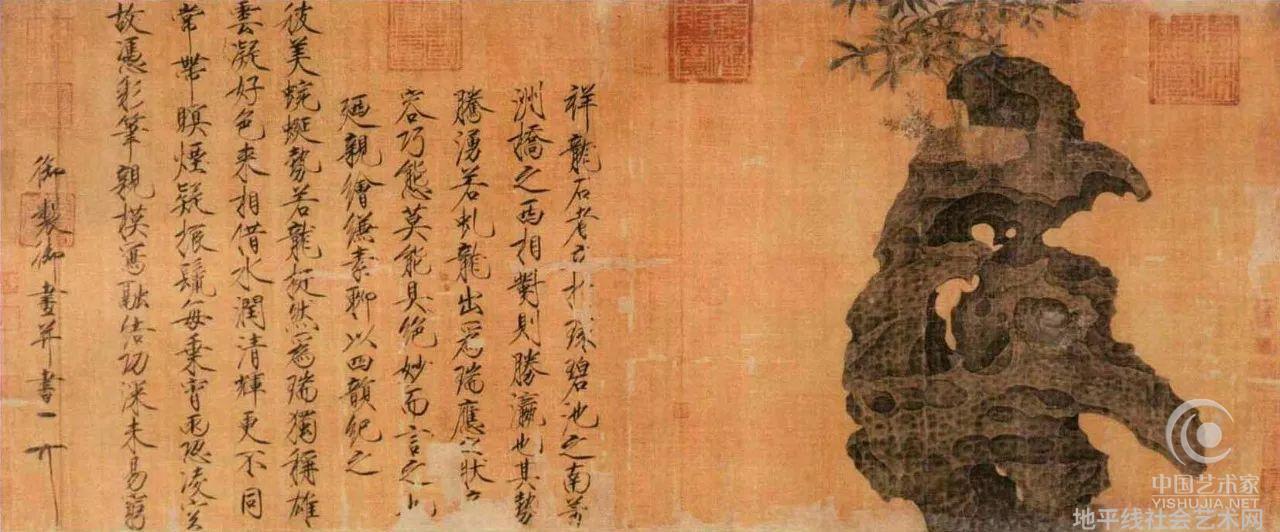 祥龍石者立於環碧池之南芳
洲橋之西相對則勝瀛也其勢
騰湧若虬龍出為瑞應之狀奇
容巧態莫能具絕妙而言之也
廼親繪縑素聊以四韻紀之
彼美蜿蜒勢若龍挺然為瑞獨稱雄
雲凝好色來相借水潤清輝更不同
常帶暝煙疑振鬣每乘宵雨恐凌空
故憑彩筆親模寫融結功深未易窮
御製御畫并書
中国艺术家
YISHUJIA.NET
地平线社会艺术网